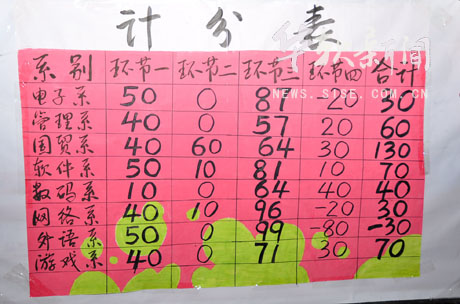 计分表
华软新闻
WWW.SISE.COM.CN
系别 环节一 环节二 环节三 环节四 合计
电子系 50 0 87 -20 30
管理系 40 0 57 20 60
国贸系 40 60 64 30 130
软件系 50 10 81 10 70
数码系 10 0 64 40 40
网络系 40 10 96 -20 30
外语系 50 0 99 -80 -30
游戏系 40 0 71 30 70